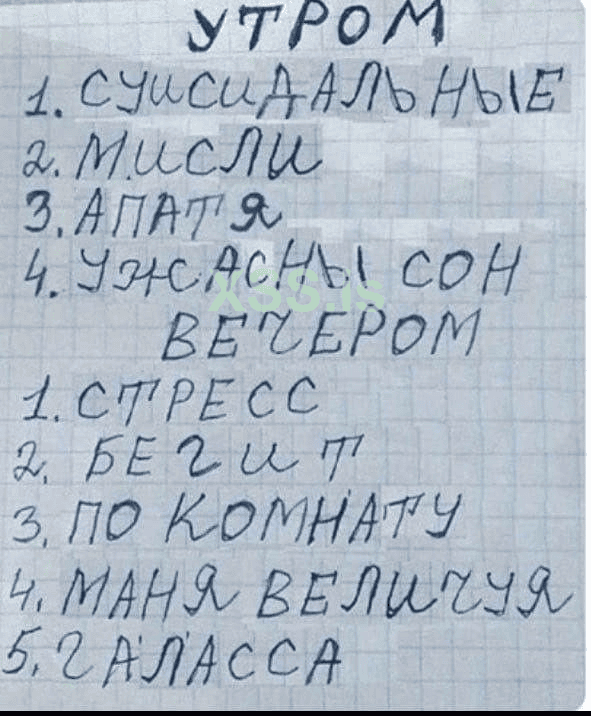 УТРОМ
1. СУИСИДАЛЬНЫЕ
2. МИСЛИ
3. АПАТЯ
4. УЖАСНЫ СОН
XSS.is
ВЕЧЕРОМ
1. СТРЕСС
2. БЕГИТ
3. ПО КОМНАТУ
4. МАНЯ ВЕЛИЧУЯ
5. ГАЛАССА